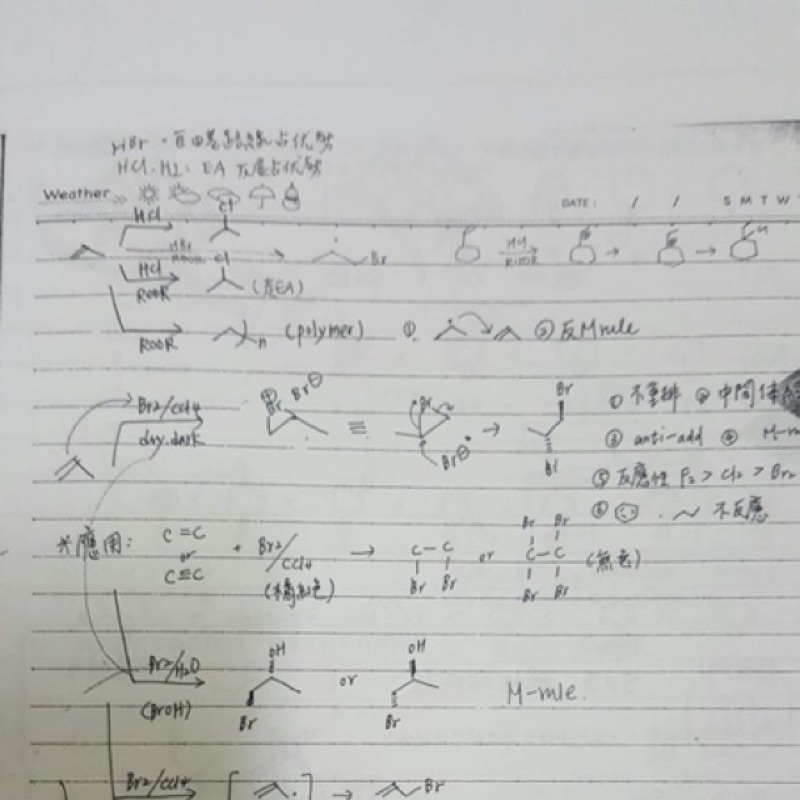 HBr · 自由基 占优势
HCl. HI: EA 反應占优势
Weather
DATE: / / S M T W
HCl Cl
HBr Br
HCl Cl (是EA)
ROOR
ROOR (polymer) ① ② 反M rule
n
Br2/CCl4 ⊕Br Br⊖ ≡ Br Br⊖ → Br Br
dry. dark
① 不重排 ② 中間体
③ anti-add ④ M-
⑤ 反應性 F2 > Cl2 > Br2
⑥ 不反應
應用: C=C or C≡C + Br2/CCl4 (橘紅色) → C-C Br Br or Br Br C-C Br Br (無色)
Br2/H2O OH Br or OH Br M-rule.
(BrOH)
Br2/CCl4 [ ] → Br